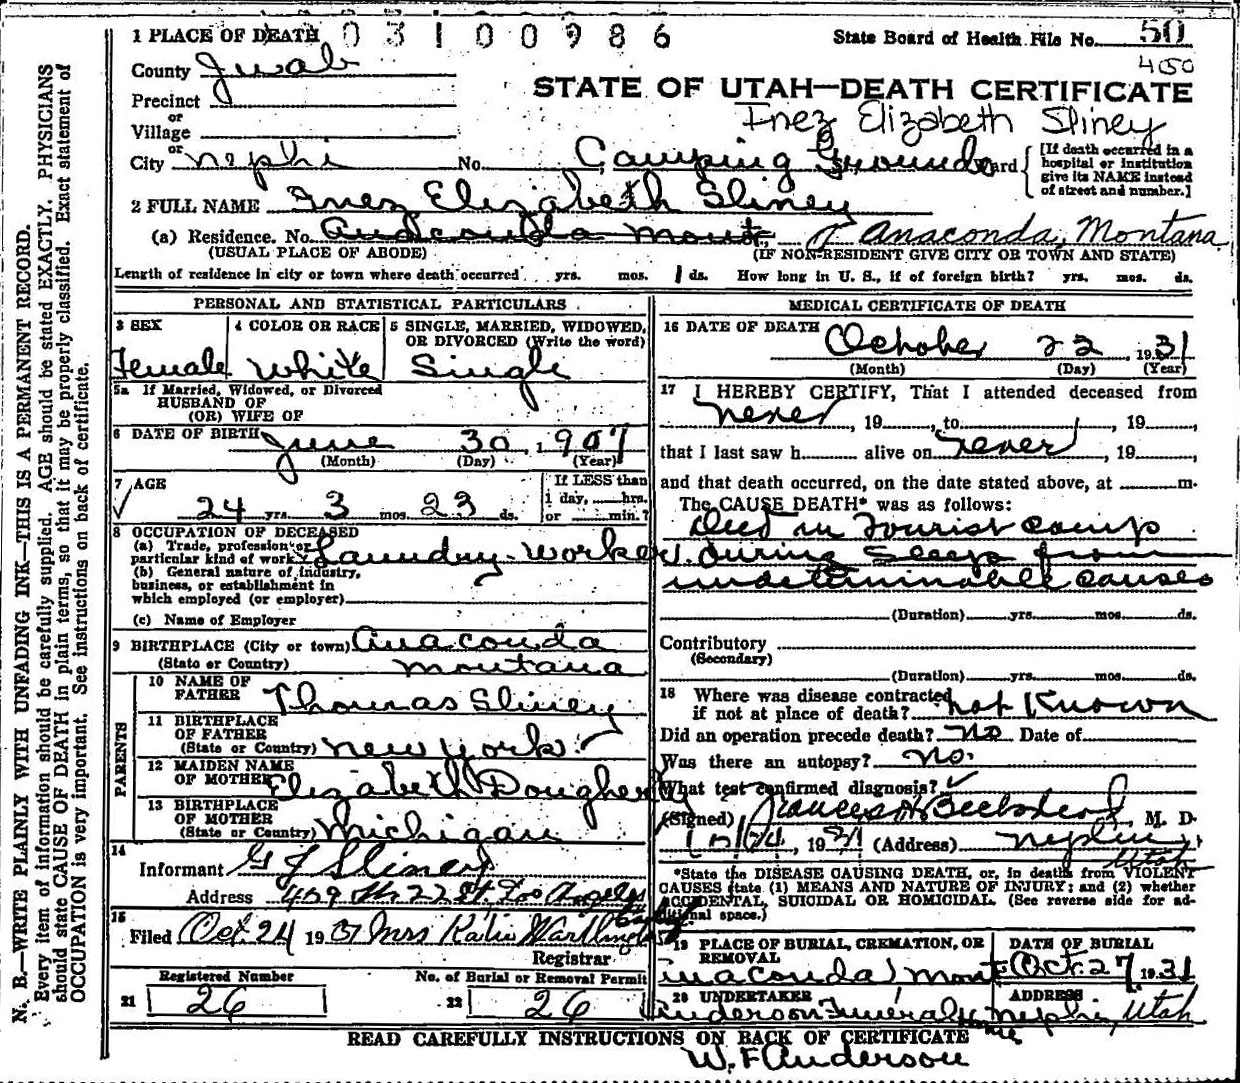 1 PLACE OF DEATH 03100986 State Board of Health File No. 50
4050
County Juab
STATE OF UTAH—DEATH CERTIFICATE
Precinct
or
Village
Inez Elizabeth Sliney
or
City Nephi No. Camping Grounds Ward
[If death occurred in a hospital or institution give its NAME instead of street and number.]
2 FULL NAME Inez Elizabeth Sliney
(a) Residence. No. Andconda Mont., Anaconda, Montana
(USUAL PLACE OF ABODE) (IF NON-RESIDENT GIVE CITY OR TOWN AND STATE)
Length of residence in city or town where death occurred yrs. mos. 1 ds. How long in U. S., if of foreign birth? yrs. mos. ds.
PERSONAL AND STATISTICAL PARTICULARS
3 SEX
Female
4 COLOR OR RACE
White
5 SINGLE, MARRIED, WIDOWED,
OR DIVORCED (Write the word)
Single
5a If Married, Widowed, or Divorced
HUSBAND OF
(OR) WIFE OF
6 DATE OF BIRTH June 30, 1907
(Month) (Day) (Year)
7 AGE
24 yrs. 3 mos. 23 ds.
If LESS than
1 day, hrs.
or min.?
8 OCCUPATION OF DECEASED
(a) Trade, profession or
particular kind of work Laundry-Worker
(b) General nature of industry,
business, or establishment in
which employed (or employer)
(c) Name of Employer
9 BIRTHPLACE (City or town) Anaconda
(State or Country) Montana
PARENTS
10 NAME OF
FATHER Thomas Sliney
11 BIRTHPLACE
OF FATHER
(State or Country) New York
12 MAIDEN NAME
OF MOTHER Elizabeth Dougherty
13 BIRTHPLACE
OF MOTHER
(State or Country) Michigan
14
Informant G J Sliney
Address 459 W. 22 St. Los Angeles
15
Filed Oct. 24 1931 Mrs Katie
Registrar
Registered Number
21 26
No. of Burial or Removal Permit
22 26
MEDICAL CERTIFICATE OF DEATH
16 DATE OF DEATH October 22, 1931
(Month) (Day) (Year)
17 I HEREBY CERTIFY, That I attended deceased from
never, 19, to, 19,
that I last saw h alive on never, 19,
and that death occurred, on the date stated above, at m.
The CAUSE DEATH* was as follows:
Died in Tourist camp
during sleep from
undeterminable causes
(Duration) yrs. mos. ds.
Contributory
(Secondary)
(Duration) yrs. mos. ds.
18 Where was disease contracted
if not at place of death? not Known
Did an operation precede death? no Date of
Was there an autopsy? no.
What test confirmed diagnosis?
(Signed) M. D.
, 1931 (Address) Nephi
Utah
*State the DISEASE CAUSING DEATH, or, in deaths from VIOLENT
CAUSES state (1) MEANS AND NATURE OF INJURY; and (2) whether
ACCIDENTAL, SUICIDAL OR HOMICIDAL. (See reverse side for ad-
ditional space.)
19 PLACE OF BURIAL, CREMATION, OR
REMOVAL
Anaconda Mont
DATE OF BURIAL
Oct. 27, 1931
20 UNDERTAKER
Anderson Funeral Home
ADDRESS
Nephi, Utah
READ CAREFULLY INSTRUCTIONS ON BACK OF CERTIFICATE
W. F Anderson
N. B.—WRITE PLAINLY WITH UNFADING INK—THIS IS A PERMANENT RECORD.
Every item of information should be carefully supplied. AGE should be stated EXACTLY. PHYSICIANS
should state CAUSE OF DEATH in plain terms, so that it may be properly classified. Exact statement of
OCCUPATION is very important. See instructions on back of certificate.